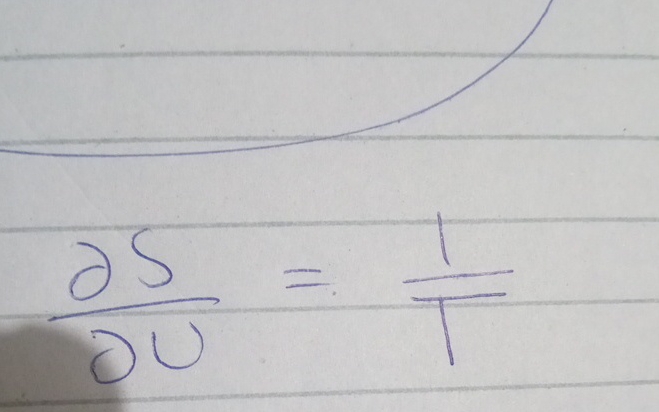 ∂S/∂U = 1/T